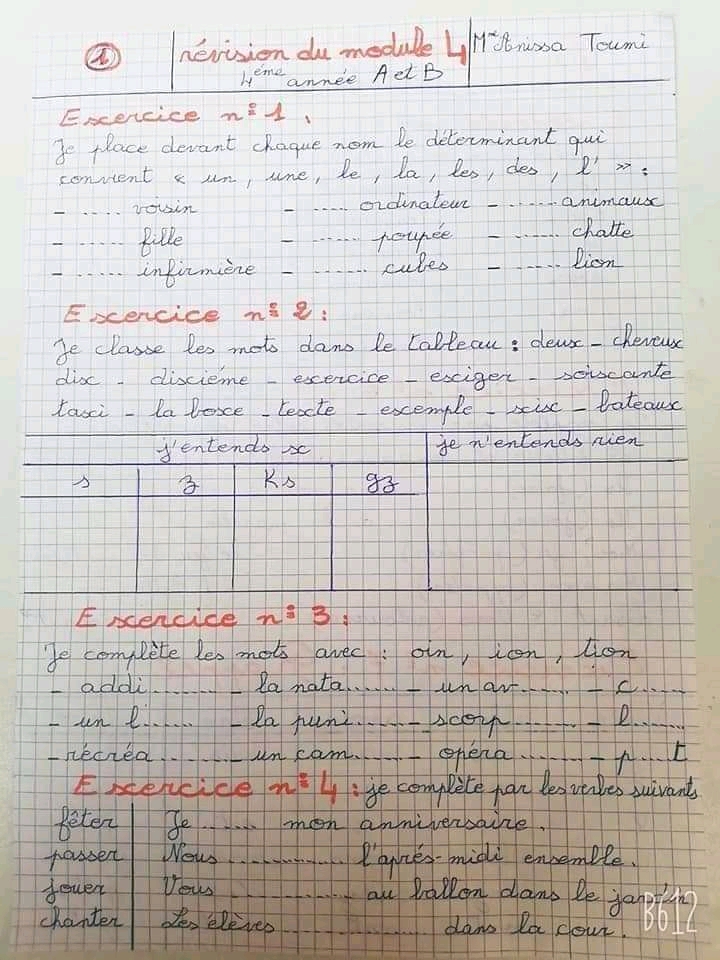 1
révision du module 4
Mme Anissa Toumi
4ème année A et B
Exercice n° 1 :
Je place devant chaque nom le déterminant qui
convient « un, une, le, la, les, des, l' » :
- ..... voisin - ..... ordinateur - ...... animaux
- ..... fille - ..... poupée - ..... chatte
- ..... infirmière - ...... cubes - ..... lion
Exercice n° 2 :
Je classe les mots dans le tableau : deux - cheveux
dix - dixiéme - exercice - exiger - soixante
taxi - la boxe - texte - exemple - six - bateaux
j'entends x je n'entends rien
s z Ks gz
Exercice n° 3 :
Je complète les mots avec : oin, ion, tion
- addi......... - la nata...... - un av...... - c.....
- un l...... - la puni........ - scorp........ - l......
- récréa......... - un cam........ - opéra......... - p....t
Exercice n° 4 : je complète par les verbes suivants
fêter Je ...... mon anniversaire.
passer Nous ............ l'aprés-midi ensemble.
jouer Vous ............ au ballon dans le jardin
chanter Les élèves ............... dans la cour.
B612